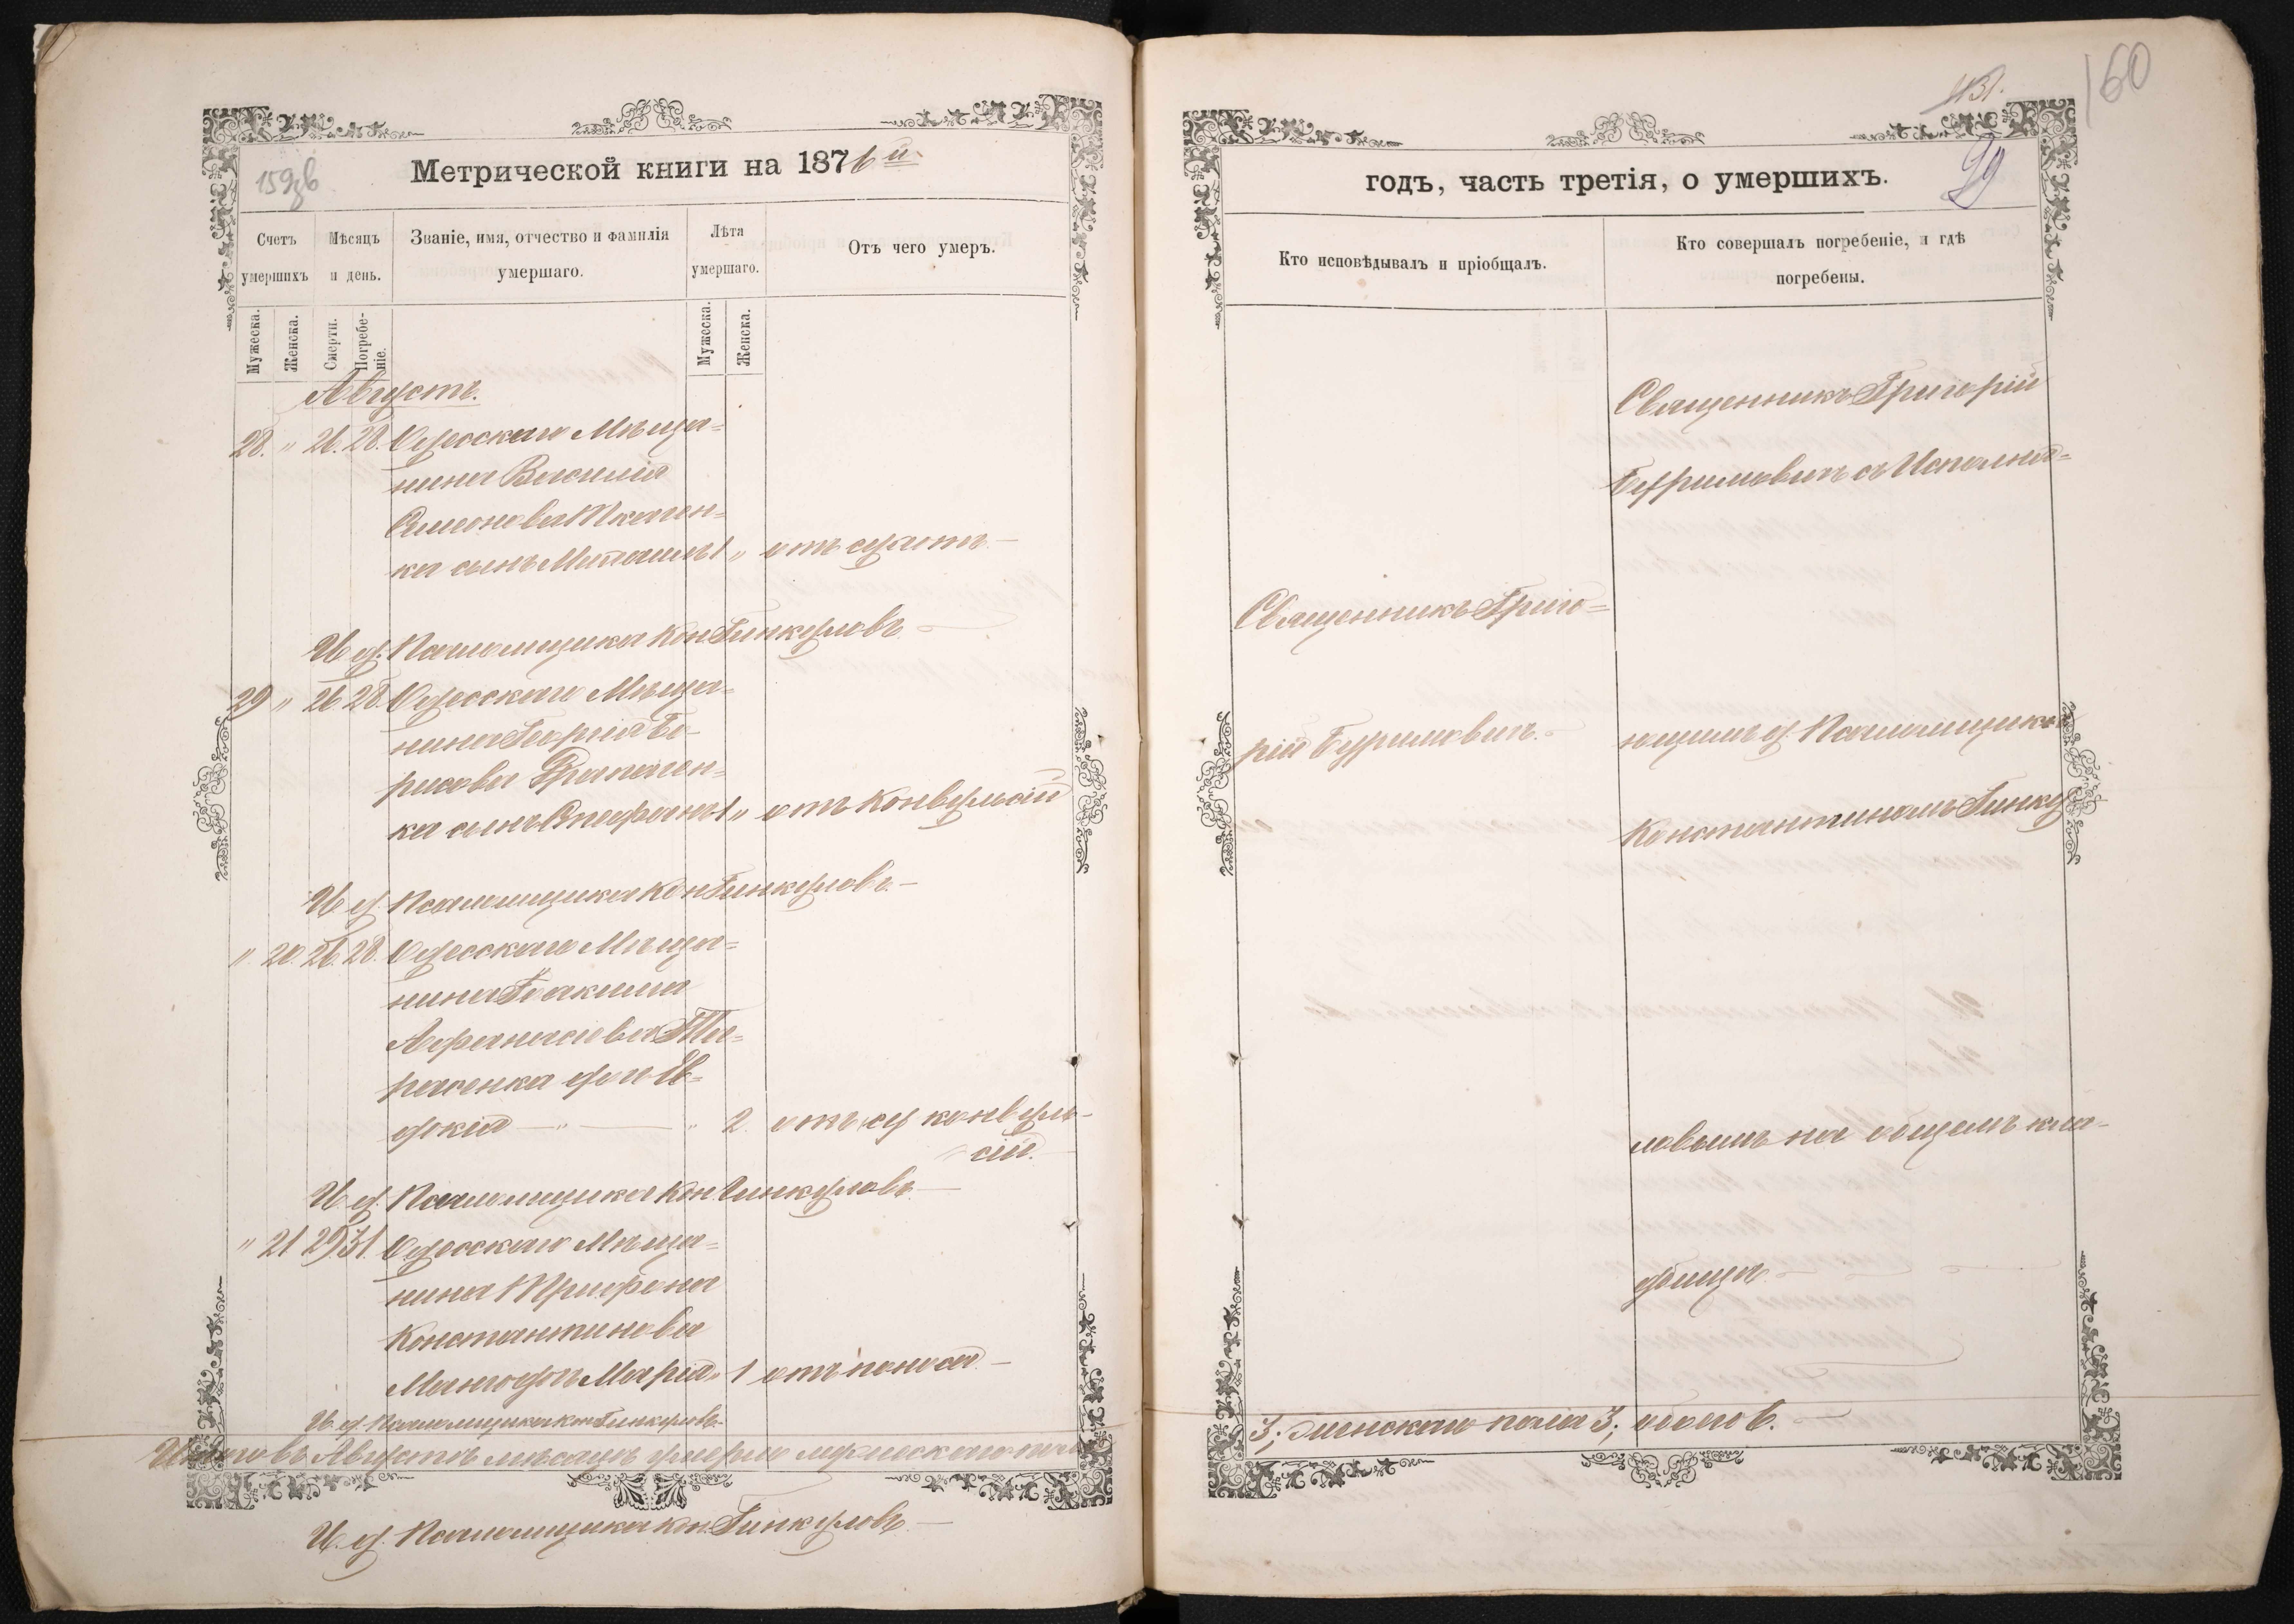 159зв
Метрической книги на 1876й
Счетъ умершихъ
Мѣсяцъ и день.
Званіе, имя, отчество и фамилія умершаго.
Лѣта умершаго.
Отъ чего умеръ.
Мужеска.
Женска.
Смерти.
Погребе-
ніе.
Мужеска.
Женска.
Августъ.
28. " 26. 28. Одесскаго Мѣща=
нина Василія
Симеонова Ткачен=
ка сынъ 1 " отъ
И. д. Псаломщика Кон. Гинкуловъ
29 " 26 28. Одесскаго Мѣща=
нина Георгія Бо-
рисова
ка сынъ Стефанъ 1 " отъ конвульсій
И. д. Псаломщика Кон Гинкуловъ
" 20. 26. 28. Одесскаго Мѣща=
нина Іоакима
Афанасіева Та-
расенка дочь Ев=
докія " " 2. отъ конвуль-
сій.
И. д. Псаломщика Кон Гинкуловъ
" 21 29 31. Одесскаго Мѣща=
нина Трифона
Константинова
дочь Марія " 1 отъ поноса
И. д. Псаломщика Кон Гинкуловъ
Итого въ Августѣ мѣсяцѣ умерло мужескаго пола
И. д. Псаломщика Кон. Гинкуловъ
160
131.
годъ, часть третія, о умершихъ.
29
Кто исповѣдывалъ и пріобщалъ.
Кто совершалъ погребеніе, и гдѣ погребены.
Священникъ Григорій
съ Исполня=
Священникъ Григо=
рій
ющимъ д. Псаломщика
Константиномъ Гинку
ловымъ на общемъ кла-
дбищѣ
3; женскаго пола 3; обоего 6.